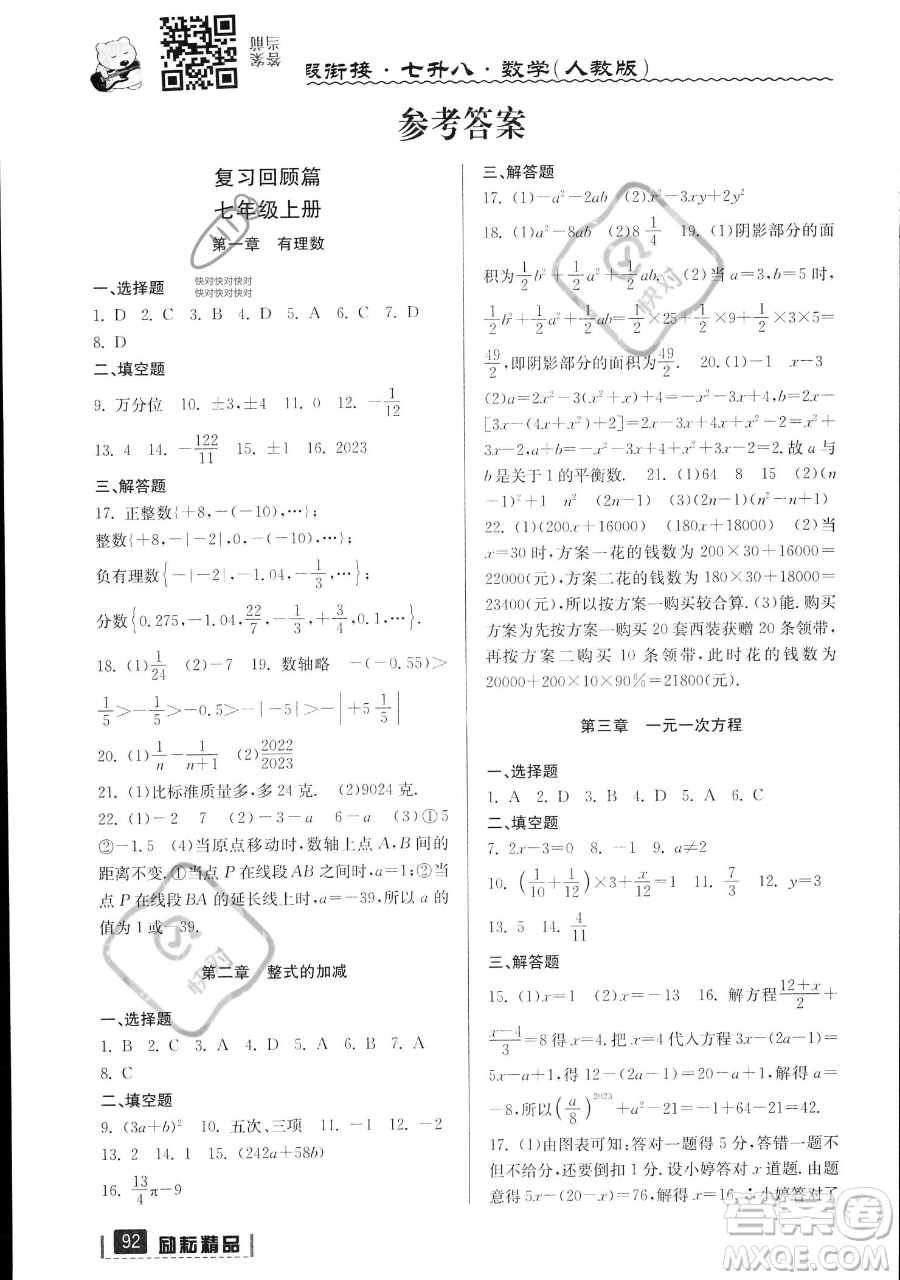 答案前
答当
假衔接·七升八·数学(人教版)
参考答案
复习回顾篇
七年级上册
第一章 有理数
快对快对快对
快对快对快对
一、选择题
1. D 2. C 3. B 4. D 5. A 6. C 7. D
8. D
二、填空题
9. 万分位 10. ±3,±4 11. 0 12. -1/12
13. 4 14. -122/11 15. ±1 16. 2023
三、解答题
17. 正整数{+8,-(-10),…};
整数{+8,-|-2|,0,-(-10),…};
负有理数{-|-2|,-1.04,-1/3,…};
分数{0.275,-1.04,22/7,-1/3,+3/4,0.1,…}.
18. (1)1/24 (2)-7 19. 数轴略 -(-0.55)>
1/5>-1/5>-0.5>-|-5|>-|+5 1/5|
20. (1)1/n-1/(n+1) (2)2022/2023
21. (1)比标准质量多,多24克. (2)9024克.
22. (1)-2 7 (2)-3-a 6-a (3)①5
②-1.5 (4)当原点移动时,数轴上点A,B间的
距离不变.①当点P在线段AB之间时,a=1;②当
点P在线段BA的延长线上时,a=-39.所以a的
值为1或-39.
第二章 整式的加减
一、选择题
1. B 2. C 3. A 4. D 5. A 6. D 7. C
8. C
二、填空题
9. (3a+b)² 10. 五次、三项 11. -1 12. -2
13. 2 14. 1 15. (242a+58b)
16. 13/4π-9
92 励耘精品
三、解答题
17. (1)-a²-2ab (2)x²-3xy+2y²
18. (1)a²-8ab (2)8 1/4 19. (1)阴影部分的面
积为1/2b²+1/2a²+1/2ab. (2)当a=3,b=5时,
1/2b²+1/2a²+1/2ab=1/2×25+1/2×9+1/2×3×5=
49/2,即阴影部分的面积为49/2. 20. (1)-1 x-3
(2)a=2x²-3(x²+x)+4=-x²-3x+4,b=2x-
[3x-(4x+x²)+2]=2x-3x+4x+x²-2=x²+
3x-2,a+b=-x²-3x+4+x²+3x-2=2.故a与
b是关于1的平衡数. 21. (1)64 8 15 (2)(n
-1)²+1 n² (2n-1) (3)(2n-1)(n²-n+1)
22. (1)(200x+16000) (180x+18000) (2)当
x=30时,方案一花的钱数为200×30+16000=
22000(元),方案二花的钱数为180×30+18000=
23400(元),所以按方案一购买较合算. (3)能.购买
方案为先按方案一购买20套西装获赠20条领带,
再按方案二购买10条领带,此时花的钱数为
20000+200×10×90%=21800(元).
第三章 一元一次方程
一、选择题
1. A 2. D 3. D 4. A 5. B 6. C
二、填空题
7. 2x-3=0 8. -1 9. a≠2
10. (1/10+1/12)×3+x/12=1 11. 7/3 12. y=3
13. 5 14. 4/11
三、解答题
15. (1)x=1 (2)x=-13 16. 解方程(12+x)/2+
(x-4)/3=8得x=4.把x=4代入方程3x-(2a-1)=
5x-a+1,得12-(2a-1)=20-a+1,解得a=
-8,所以(a/8)²⁰²³+a²-2a+1=-1+64-21=42.
17. (1)由图表可知:答对一题得5分,答错一题不
但不给分,还要倒扣1分.设小婷答对x道题,由题
意得5x-(20-x)=76,解得x=16,∴小婷答对了